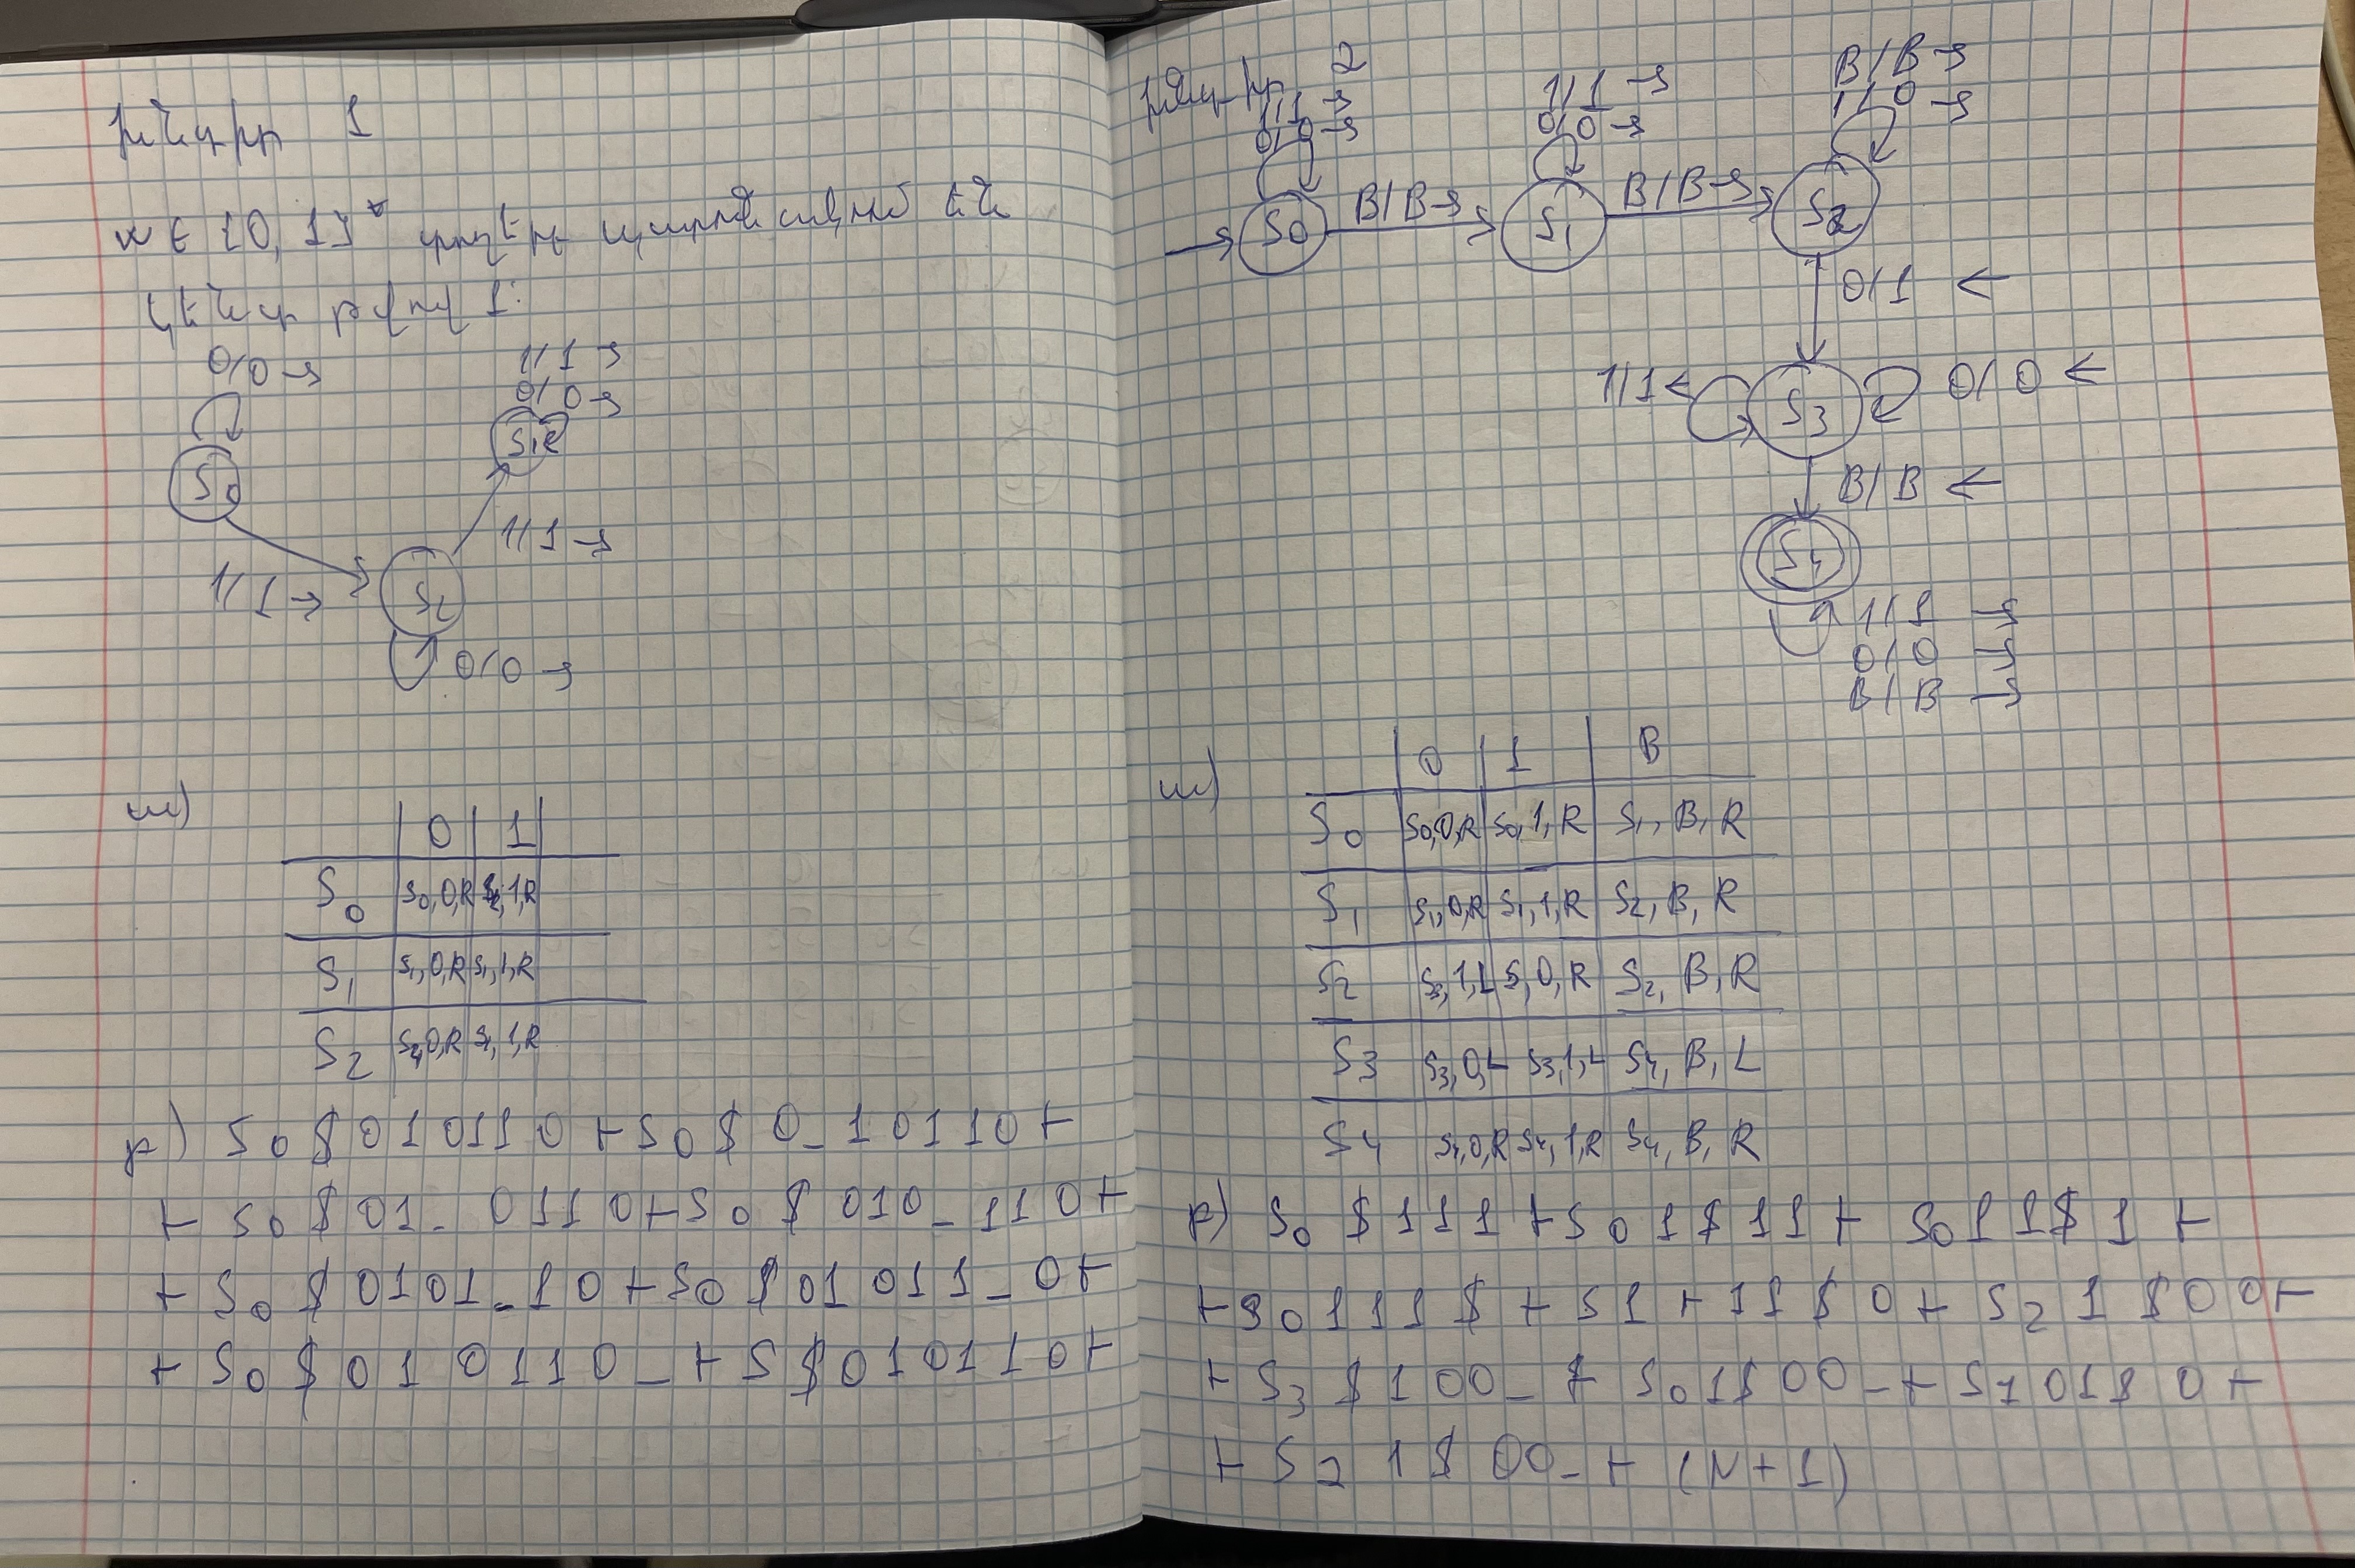 խնդիր 1
w ∈ {0, 1}* տողեր պարունակում են
կենտ թվով 1:
0/0 →
1/1 →
0/0 →
S0
S1
1/1 →
1/1 →
S2
0/0 →
ա)
0 1
S0 S0,0,R S2,1,R
S1 S1,0,R S1,1,R
S2 S2,0,R S1,1,R
բ) S0 $ 010110 ⊢ S0 $ 0_10110 ⊢
⊢ S0 $ 01_0110 ⊢ S0 $ 010_110 ⊢
⊢ S0 $ 0101_10 ⊢ S0 $ 01011_0 ⊢
⊢ S0 $ 010110_ ⊢ S $ 010110 ⊢
խնդիր 2
1/1 →
0/0 →
1/1 →
0/0 →
B/B →
1/0 →
S0 B/B → S1 B/B → S2
0/1 ←
1/1 ← S3 0/0 ←
B/B ←
S4
1/1 →
0/0 →
B/B →
ա)
0 1 B
S0 S0,0,R S0,1,R S1,B,R
S1 S1,0,R S1,1,R S2,B,R
S2 S3,1,L S,0,R S2,B,R
S3 S3,0,L S3,1,L S4,B,L
S4 S4,0,R S4,1,R S4,B,R
բ) S0 $ 111 ⊢ S0 1 $ 11 ⊢ S0 11 $ 1 ⊢
⊢ S0 111 $ ⊢ S1 ⊢ 11 $ 0 ⊢ S2 1 $ 00 ⊢
⊢ S3 $ 100_ ⊢ S0 1 $ 00_ ⊢ S1 01 $ 0 ⊢
⊢ S2 1 $ 00_ ⊢ (N+1)